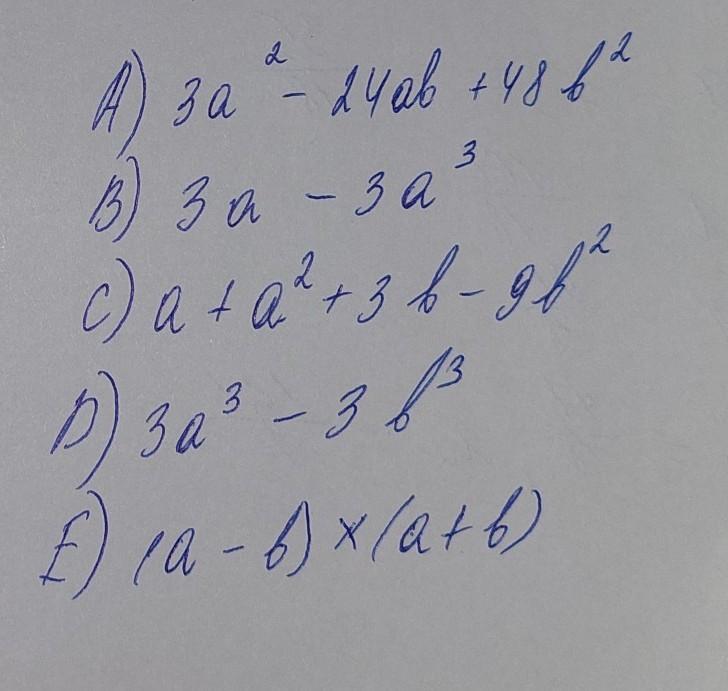 A) 3a² - 24ab + 48b²
B) 3a - 3a³
C) a + a² + 3b - 9b²
D) 3a³ - 3b³
E) (a - b) × (a + b)